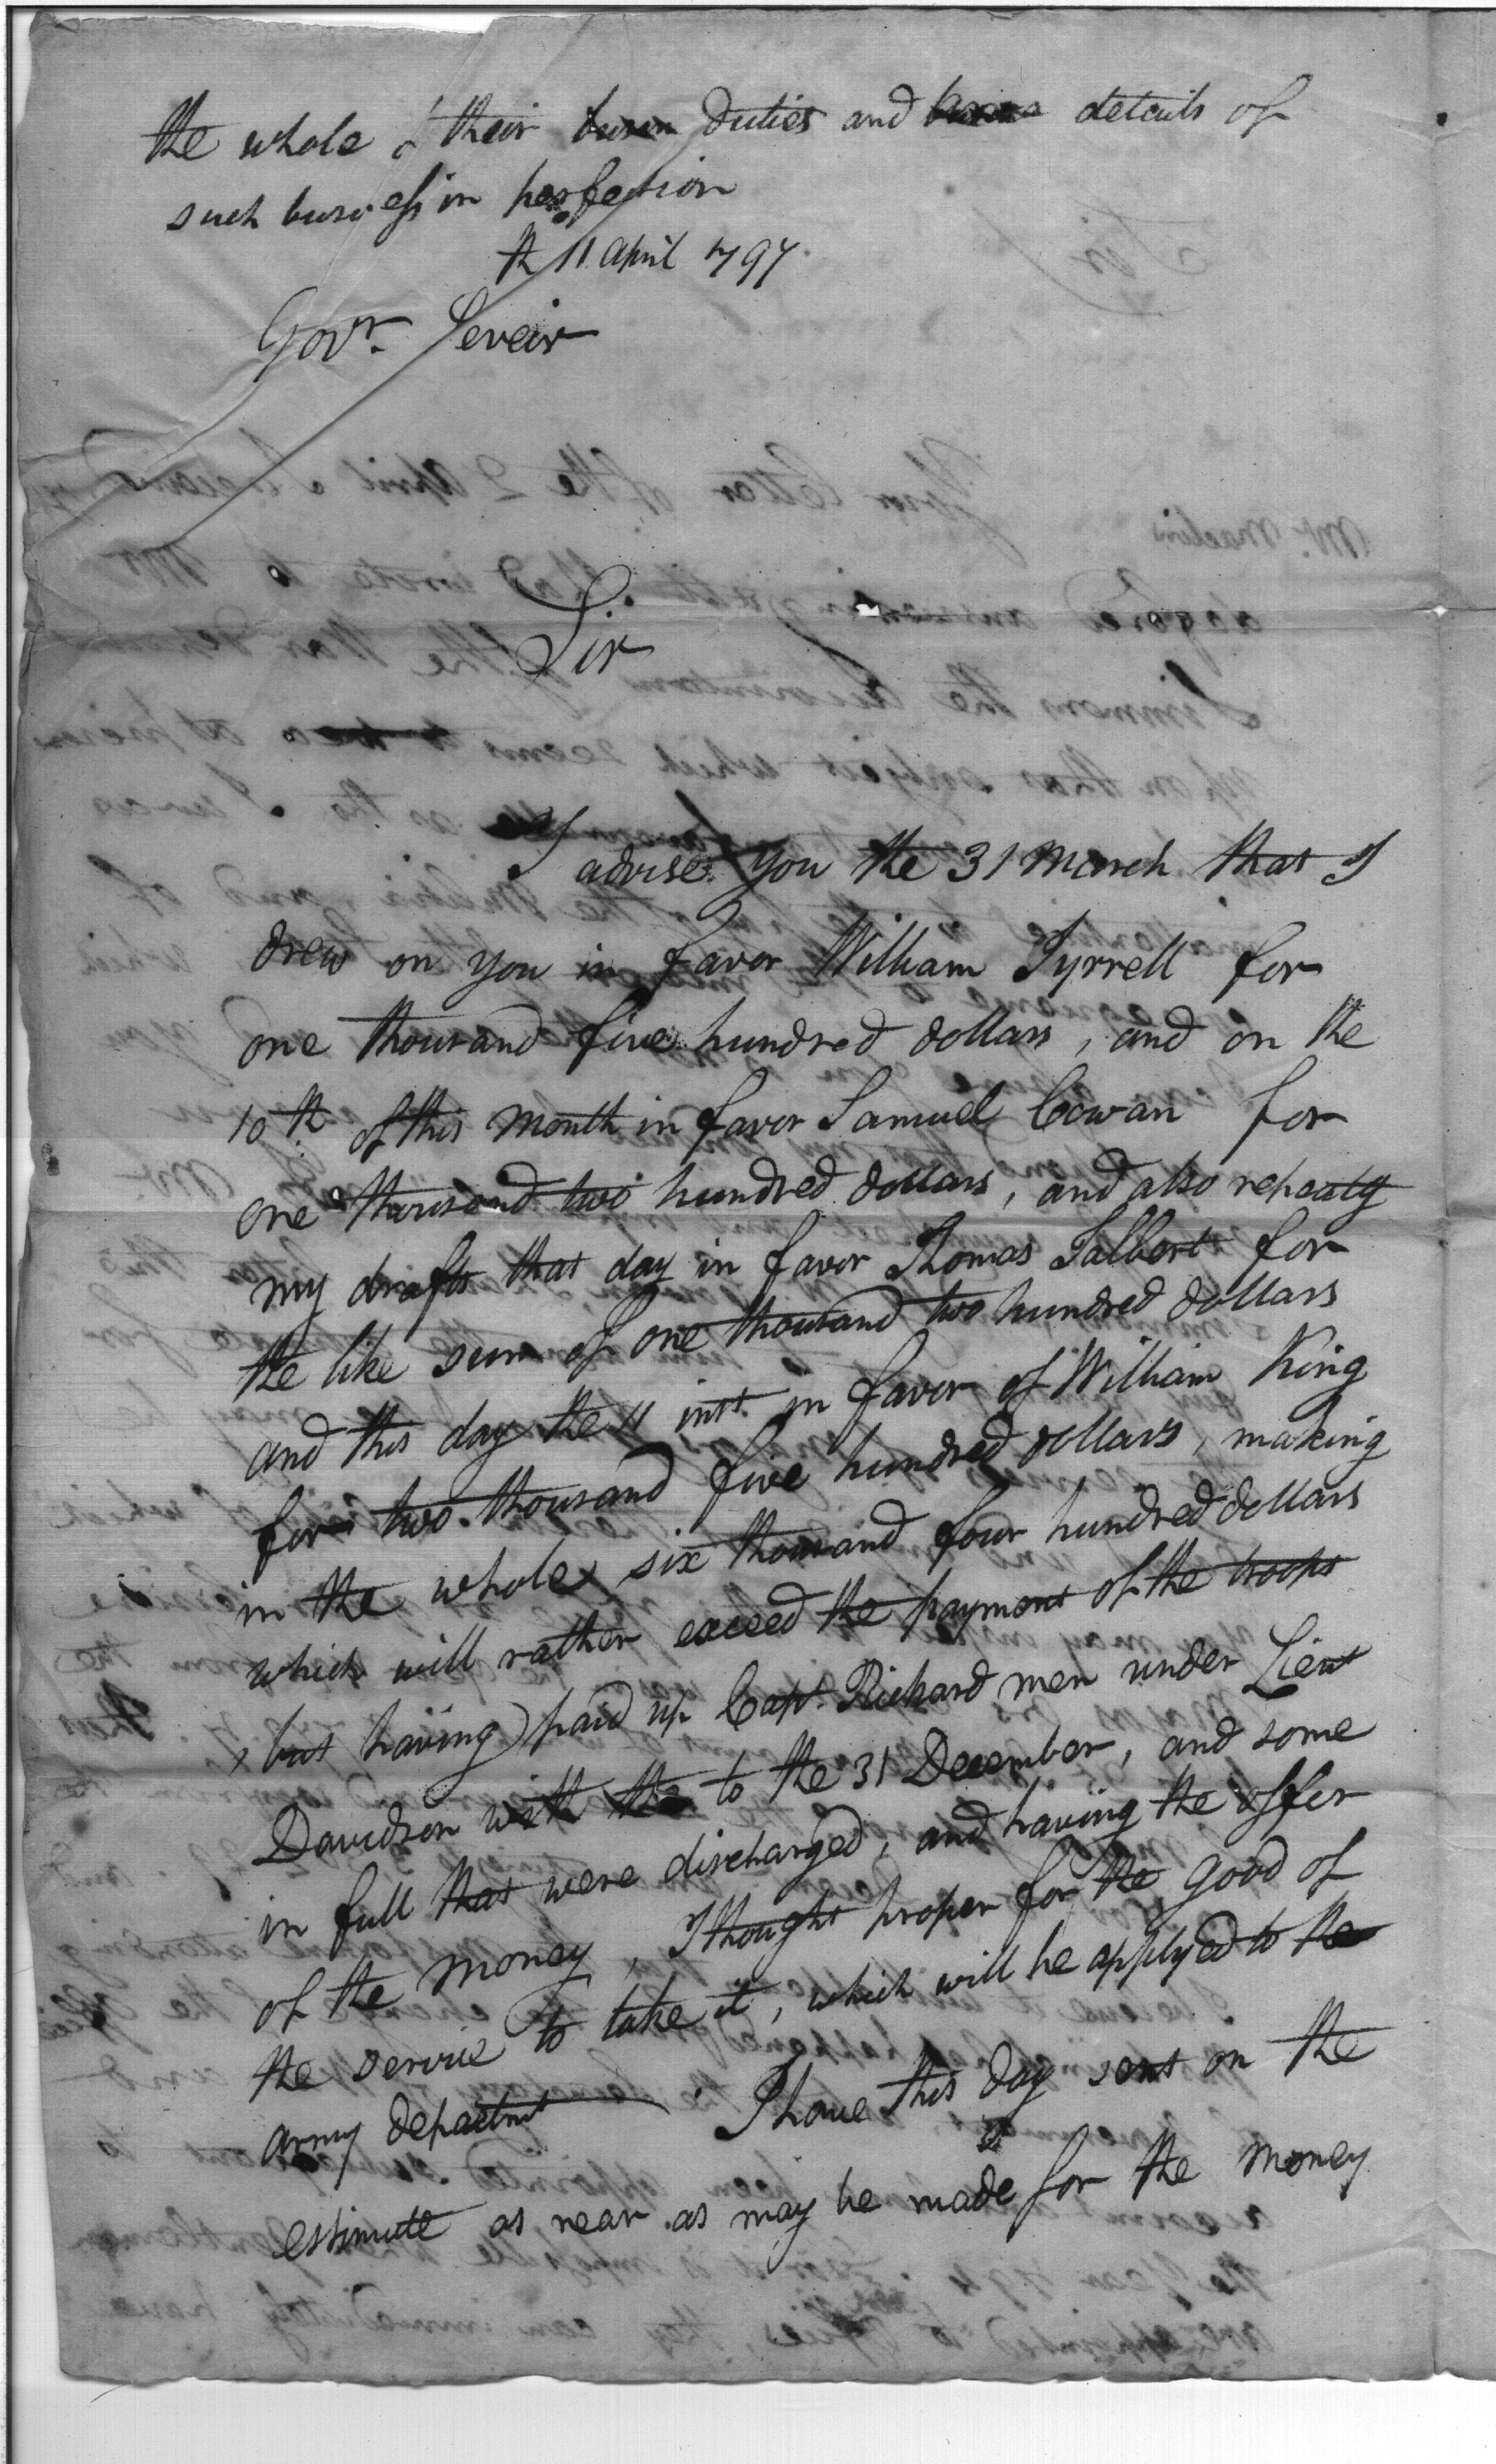 the whole of their duties and details of
such business in perfection
th 11 april 1797
Govr. Seveir
Sir
I advised you the 31 March that I
drew on you in favor William Tyrrell for
one thousand five hundred dollars, and on the
10th of this month in favor Samuel Cowan for
one thousand two hundred dollars, and also repeatg
my drafts that day in favor Thomas Talbert for
the like sum of one thousand two hundred dollars
and this day the 11 instt. in favor of William King
for two thousand five hundred dollars, making
in the whole six thousand four hundred dollars
which will rather exceed the payment of the troops
, but having paid up Capt. Richard men under Lieut
Davidson to the 31 December, and some
in full that were discharged, and having the offer
of the money, I thought proper for the good of
the service to take it, which will be applyed to the
army
I have this day sent on the
estimate as near as may be made for the money